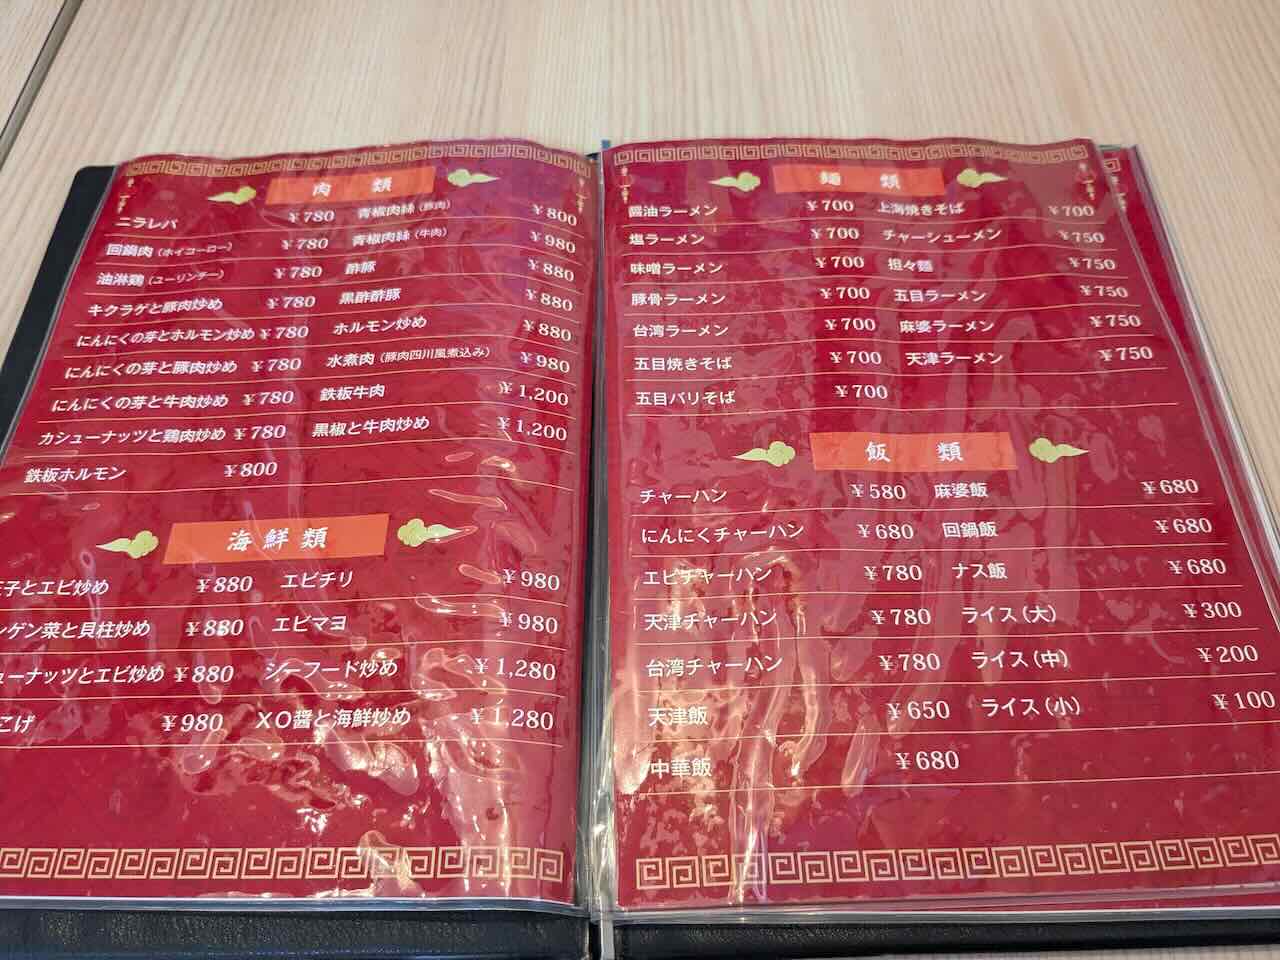 肉類
ニラレバ ￥780 青椒肉絲（豚肉） ￥800
回鍋肉（ホイコーロー） ￥780 青椒肉絲（牛肉） ￥980
油淋鶏（ユーリンチー） ￥780 酢豚 ￥880
キクラゲと豚肉炒め ￥780 黒酢酢豚 ￥880
にんにくの芽とホルモン炒め ￥780 ホルモン炒め ￥880
にんにくの芽と豚肉炒め ￥780 水煮肉（豚肉四川風煮込み） ￥980
にんにくの芽と牛肉炒め ￥780 鉄板牛肉 ￥1,200
カシューナッツと鶏肉炒め ￥780 黒椒と牛肉炒め ￥1,200
鉄板ホルモン ￥800
海鮮類
子とエビ炒め ￥880 エビチリ ￥980
ンゲン菜と貝柱炒め ￥880 エビマヨ ￥980
ューナッツとエビ炒め ￥880 シーフード炒め ￥1,280
こげ ￥980 XO醤と海鮮炒め ￥1,280
麺類
醤油ラーメン ￥700 上海焼きそば ￥700
塩ラーメン ￥700 チャーシューメン ￥750
味噌ラーメン ￥700 担々麺 ￥750
豚骨ラーメン ￥700 五目ラーメン ￥750
台湾ラーメン ￥700 麻婆ラーメン ￥750
五目焼きそば ￥700 天津ラーメン ￥750
五目バリそば ￥700
飯類
チャーハン ￥580 麻婆飯 ￥680
にんにくチャーハン ￥680 回鍋飯 ￥680
エビチャーハン ￥780 ナス飯 ￥680
天津チャーハン ￥780 ライス（大） ￥300
台湾チャーハン ￥780 ライス（中） ￥200
天津飯 ￥650 ライス（小） ￥100
中華飯 ￥680